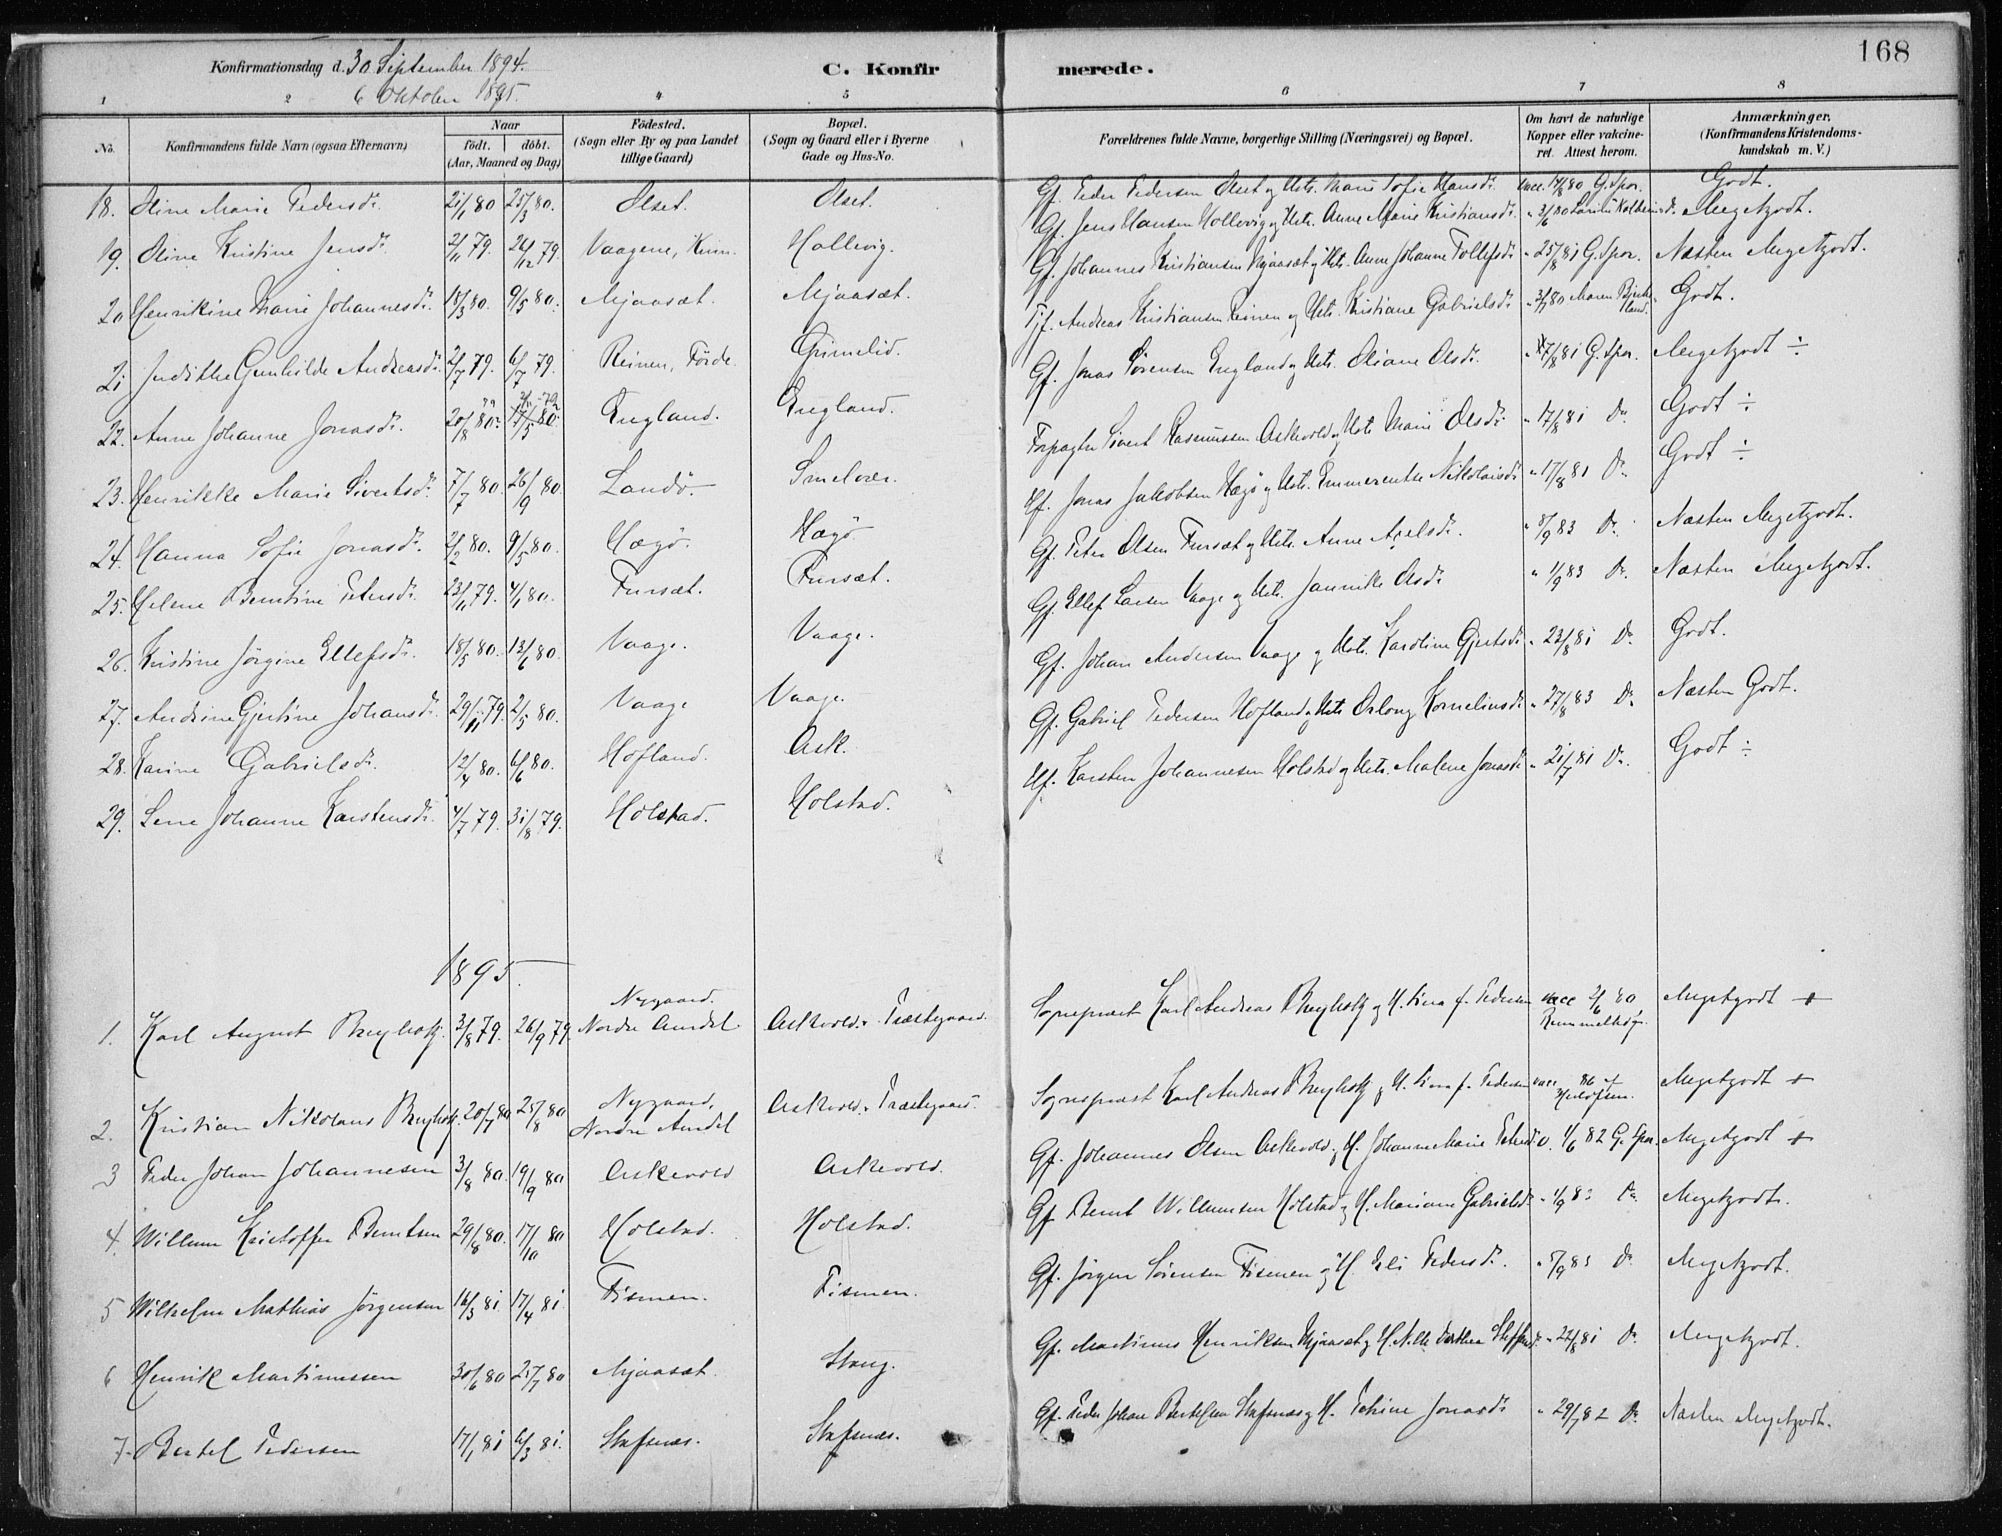 168
Konfirmationsdag d. 30 September 1894.
6 Oktober 1895.
C. Konfirmerede.
1 2 4 5 6 7 8
No. Konfirmandens fulde Navn (ogsaa Efternavn) Naar født. døbt. (Aar, Maaned og Dag) Fødested. (Sogn eller By og paa Landet tillige Gaard) Bopæl. (Sogn og Gaard eller i Byerne Gade og Hus-No. Forældrenes fulde Navne, borgerlige Stilling (Næringsvei) og Bopæl. Om havt de naturlige Kopper eller vakcineret. Attest herom. Anmærkninger. (Konfirmandens Kristendomskundskab m. V.)
18. Oline Marie Pedersdr. 21/1 80 25/3 80. Olset. Olset. Gf. Peder Pedersen Olset og Hst. Marie Sofie Hansdr. vacc. 17/8 80 G. Spor. Godt.
19. Oline Kristine Jensdr. 2/11 79. 26/12 79. Vaagene, Kinn. Hollevig. Gf. Jens Hansen Hollevig og Hst. Anne Marie Kristiansdr. " 3/6 80 Megetgodt.
20 Henrikine Marie Johannesdr. 18/3 80. 9/5 80. Mjaasæt. Mjaasæt. Gf. Johannes Kristiansen Mjaasæt og Hst. Anne Johanne Tollefsdr. " 25/8 81 G. Spor. Næsten Megetgodt.
21 Judithe Gunhilde Andreasdr. 2/7 79. 6/7 79. Reinen, Förde. Grimelid. Tjf. Andreas Kristiansen Reinen og Hst. Kristiane Gabrielsdr. Godt.
22. Anne Johanne Jonasdr. 20/8 80. 17/5 80. England. England. Gf. Jonas Sørensen England og Hst. Oliane Olsdr. 17/8 81 G. Spor. Megetgodt ÷
23. Henrikke Marie Sivertsdr. 7/7 80. 26/9 80. Landö. Smelvær. Forpagter Sivert Rasmussen Askvold og Hst. Marie Olsdr. " 17/8 81 Do. Godt ÷
24. Hanna Sofie Jonasdr. 2/2 80. 9/5 80. Hægö. Hægö Hf. Jonas Jakobsen Hægö og Hst. Emmerentse Nikolaisdr. " 17/8 81 Do. Godt ÷
25. Helene Berntine Petersdr. 23/11 79. 4/1 80. Fursæt. Fursæt. Gf. Peter Olsen Fursæt og Hst. Anne Axelsdr. " 8/9 83 Do. Næsten Megetgodt.
26. Kristine Jörgine Ellefsdr. 18/5 80. 13/6 80. Vaage. Vaage. Gf. Ellef Larsen Vaage og Hst. Jannike Olsdr. " 1/9 83 Do. Næsten Megetgodt.
27. Andrine Gjertine Johansdr. 29/11 79. 2/5 80. Vaage Vaage. Gf. Johan Andersen Vaage og Hst. Karoline Gjertsdr. " 23/8 81 Do. Godt.
28. Karine Gabrielsdr. 12/4 80. 6/6 80. Hofland. Ask. Gf. Gabriel Pedersen Hofland og Hst. Orlong Korneliusdr. " 27/8 83 Do. Næsten Godt.
29. Lene Johanne Karstensdr. 4/7 79. 31/8 79. Holstad. Holstad. Hf. Karsten Johannesen Holstad og Hst. Malene Jonasdr. " 21/7 81 Do. Godt ÷
1895
1. Karl August Breyholtz. 3/8 79. 26/9 79. Nygaard. Nordre Aurdal. Askevold. Præstegaard. Sognepræst Karl Andreas Breyholtz og H. Lina f. Pedersen vacc 2/6 80 Megetgodt +
2. Kristian Nikolaus Breyholtz. 20/7 80 25/8 80 Nygaard, Nordre Aurdal Askevold. Præstegaard. Sognepræst Karl Andreas Breyholtz og H. Lina f. Pedersen vacc. 86 Megetgodt +
3 Peder Johan Johannesen 3/8 80. 19/9 80 Askevold Askevold. Gf. Johannes Olsen Askevold og H. Johanne Marie Petersdr. v. 1/6 82 G. Spor. Megetgodt +
4. Willum Kristoffer Berntsen 29/8 80. 17/10 80 Holstad. Holstad. Gf Bernt Willumsen Holstad og H. Mariane Gabrielsdr. " 1/9 83 Do. Megetgodt.
5 Wilhelm Mathias Jörgensen 16/3 81 17/4 81. Fismen. Fismen. Gf. Jörgen Sörensen Fismen og H. Eli Pedersdr. " 5/9 83 Do. Megetgodt.
6 Henrik Martinussen 30/6 80 25/7 80 Mjaasæt. Stang. Gf. Martinus Henriksen Mjaasæt og H. Nille Dorthea Steffensdr. " 22/8 81 Do. Megetgodt.
7. Bertel Pedersen 17/1 81 6/3 81. Stafsnæs. Stafsnæs. Gf. Peder Johan Bertelsen Stafsnæs og H. Petrine Jonasdr. " 29/7 82 Do. Næsten Megetgodt.